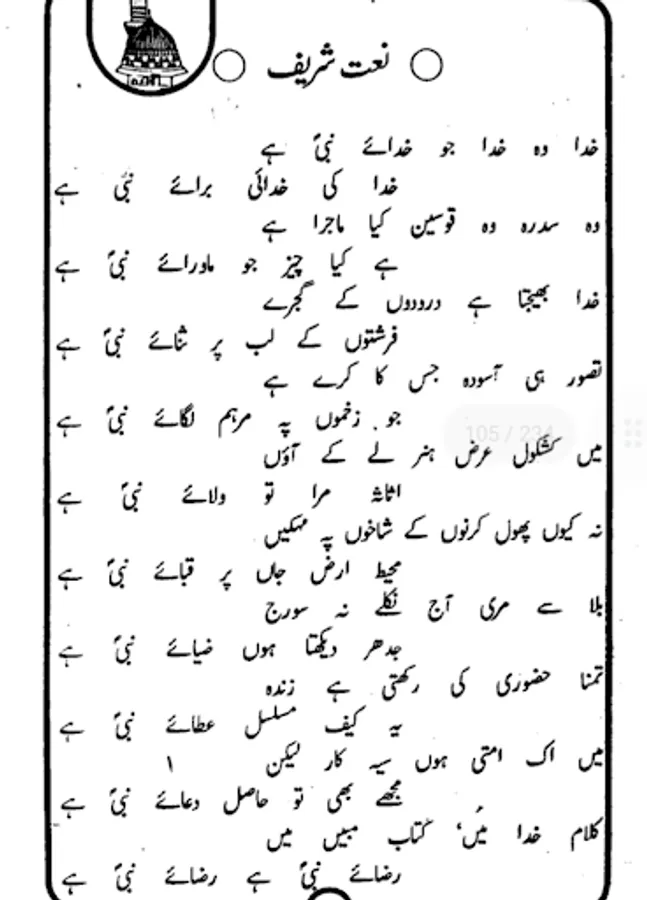 نعت شریف
خدا وہ خدا جو خدائے نبیؐ ہے
خدا کی خدائی برائے نبیؐ ہے
وہ سدرہ وہ قوسین کیا ماجرا ہے
ہے کیا چیز جو ماورائے نبیؐ ہے
خدا بھیجتا ہے درودوں کے گجرے
فرشتوں کے لب پر ثنائے نبیؐ ہے
تصور ہی آسودہ جس کا کرے ہے
جو زخموں پہ مرہم لگائے نبیؐ ہے
105 / 234
میں کشکول عرض ہنر لے کے آؤں
اثاثہ مرا تو ولائے نبیؐ ہے
نہ کیوں پھول کرنوں کے شاخوں پہ مہکیں
محیط ارض جاں پر قبائے نبیؐ ہے
بلا سے مری آج نکلے نہ سورج
جدھر دیکھتا ہوں ضیائے نبیؐ ہے
تمنا حضوری کی رکھتی ہے زندہ
یہ کیف مسلسل عطائے نبیؐ ہے
میں اک امتی ہوں سیہ کار لیکن ۱
مجھے بھی تو حاصل دعائے نبیؐ ہے
کلام خدا میں، کتاب مبیں میں
رضائے نبیؐ ہے رضائے نبیؐ ہے